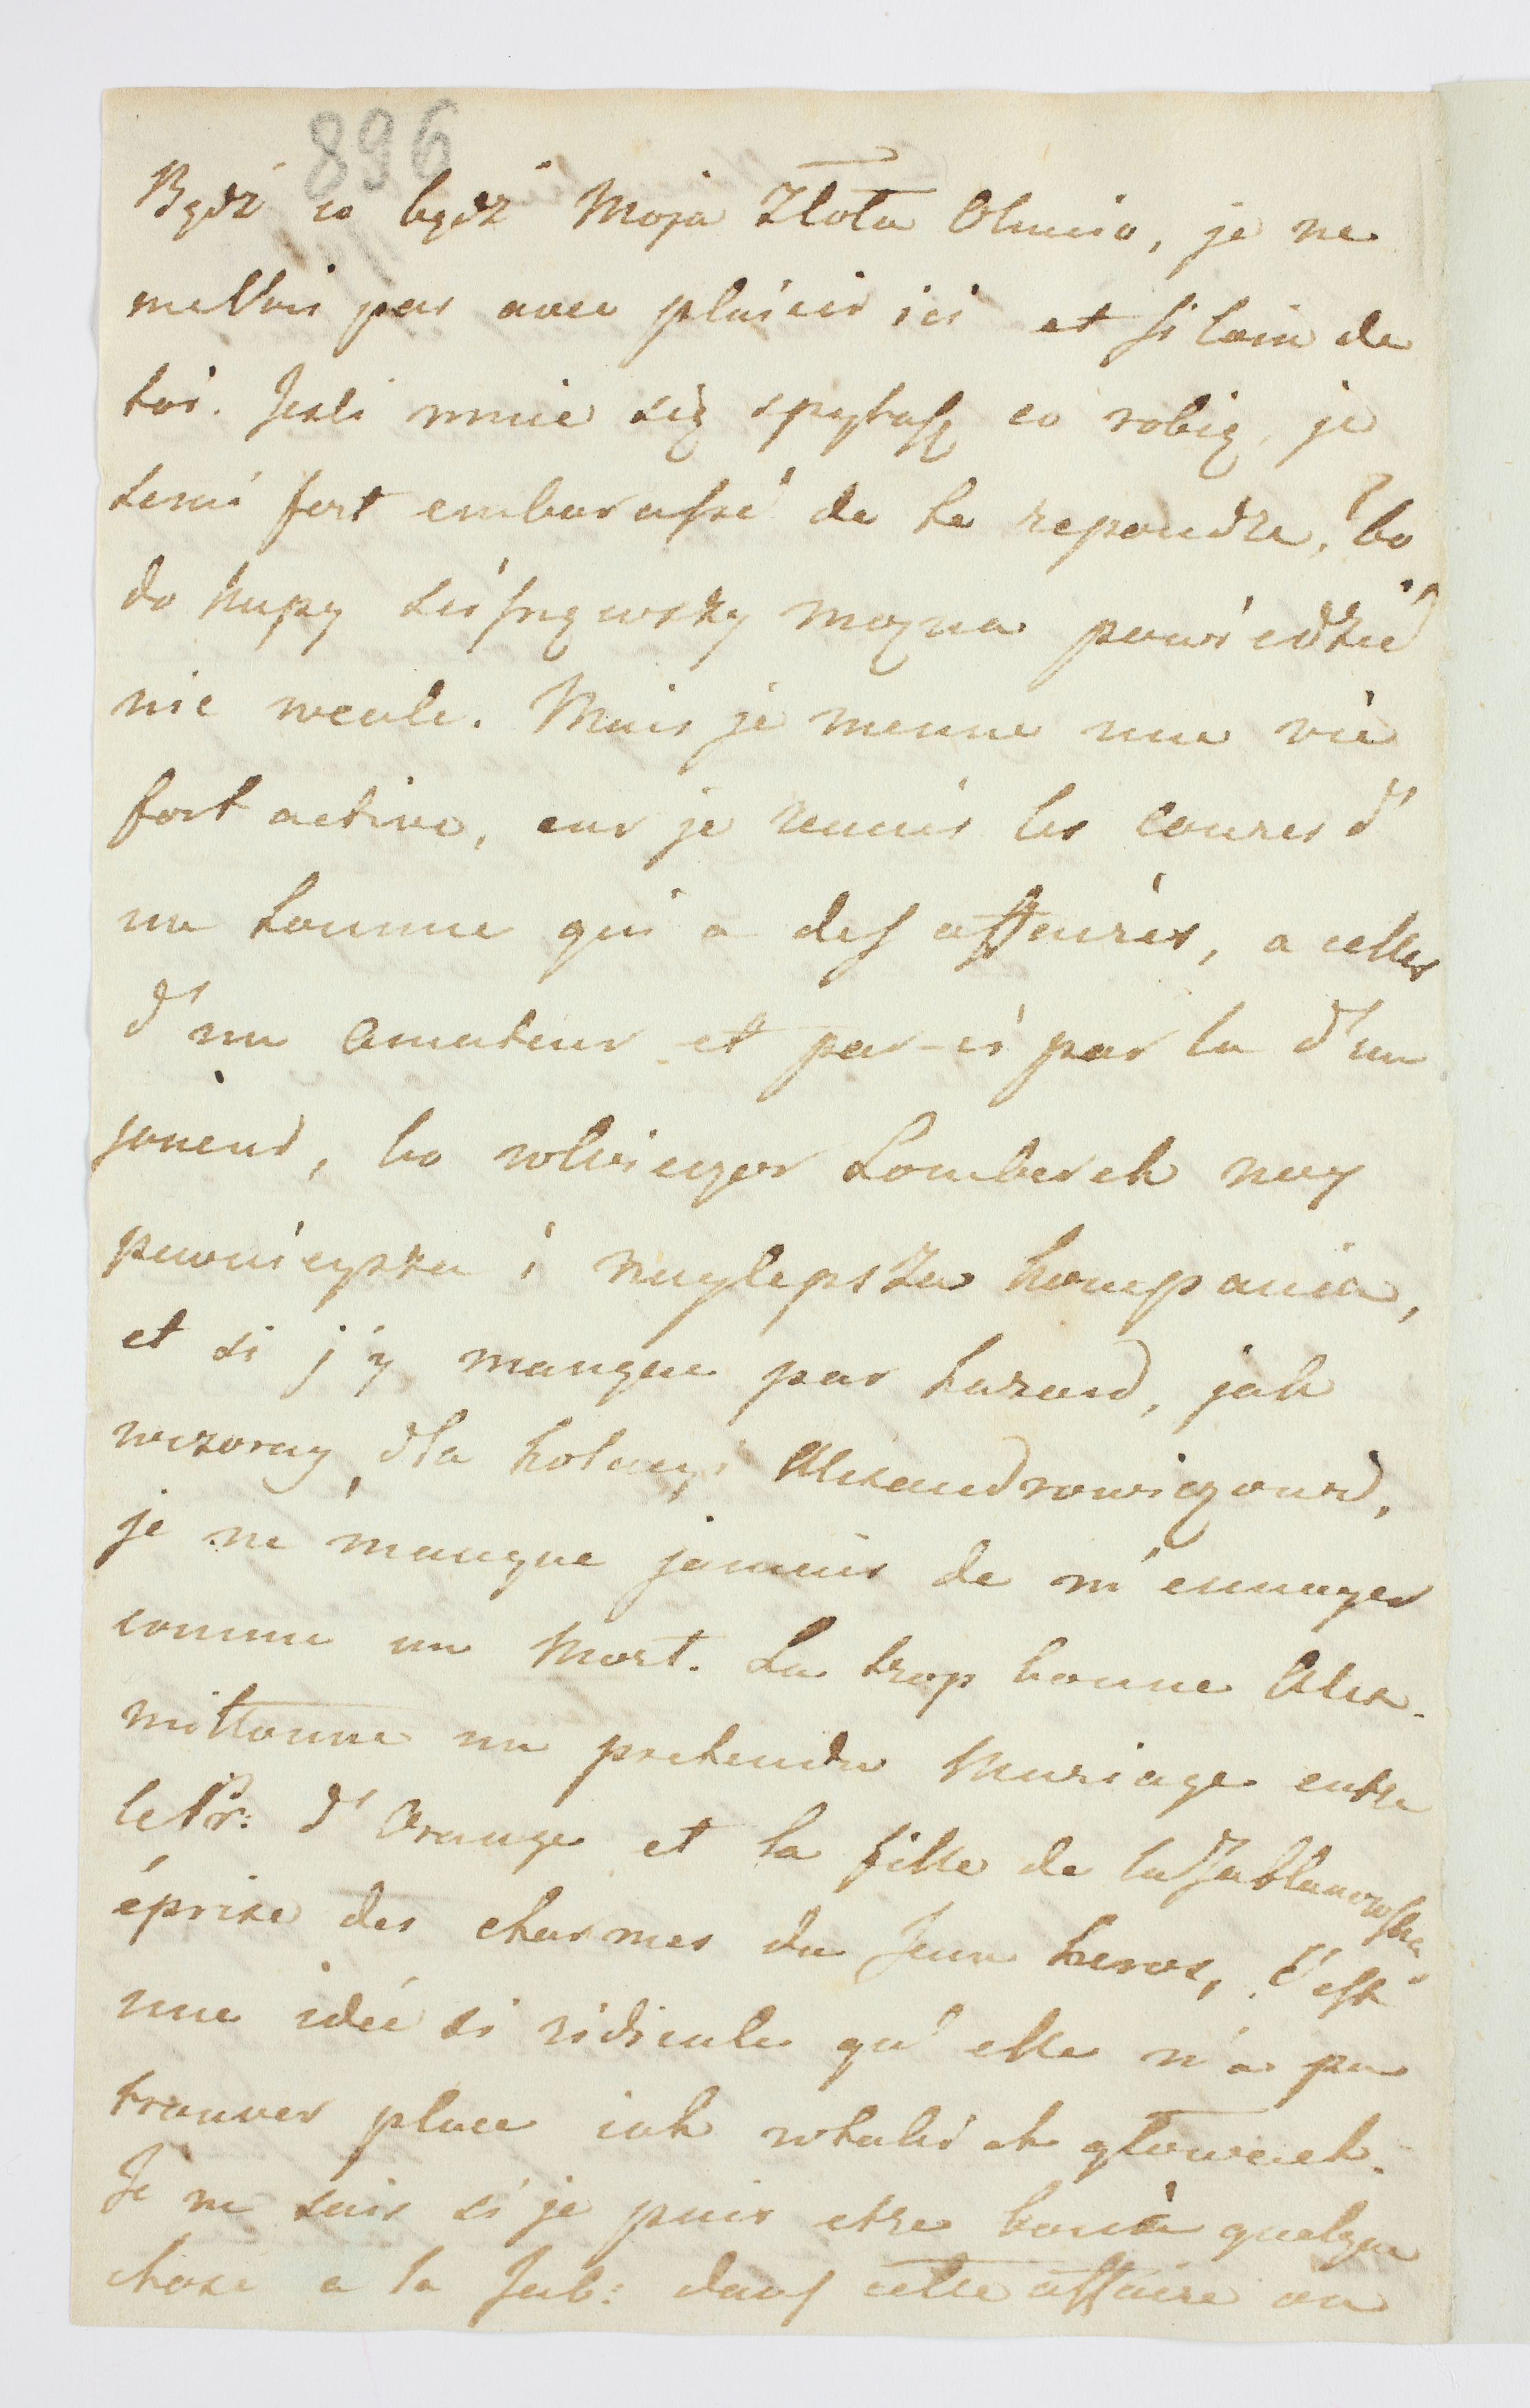 896
Bądź co bądź Moja Złota Olunia, je ne
me vois pas avec plaisir ici et si loin de
toi. Jesli mnie się spytasz co robię, je
serai fort embarassé de te repondre, bo
do kupy wszy mozna powiedzieć
nic wcale. Mais je menne une vie
fort active, car je reunis les courses d'
un homme qui a des affaires, a celles
d'un amateur et par-ci par la d'un
joueur, bo wwieczor Lomberek nay
pewnieyszy i naylepsza kompania,
et si j'y manque par hazard, jak
wczoray, dla kolacyi Alexandrowiczowd,
je ne manque jamais de m'ennuyer
comme un Mort. La trop bonne Alex.
mittonne un pretendu Mariage entre
le Pr: d'Orange et la fille de la Jabłonowska
éprise des charmes du Jeune heros, C'est
une idée si ridicule qu'elle n'a pu
trouver place jak wtakich głowach.
Je ne sais si je puis etre bon à quelque
chose a la Jab: dans cette affaire ou